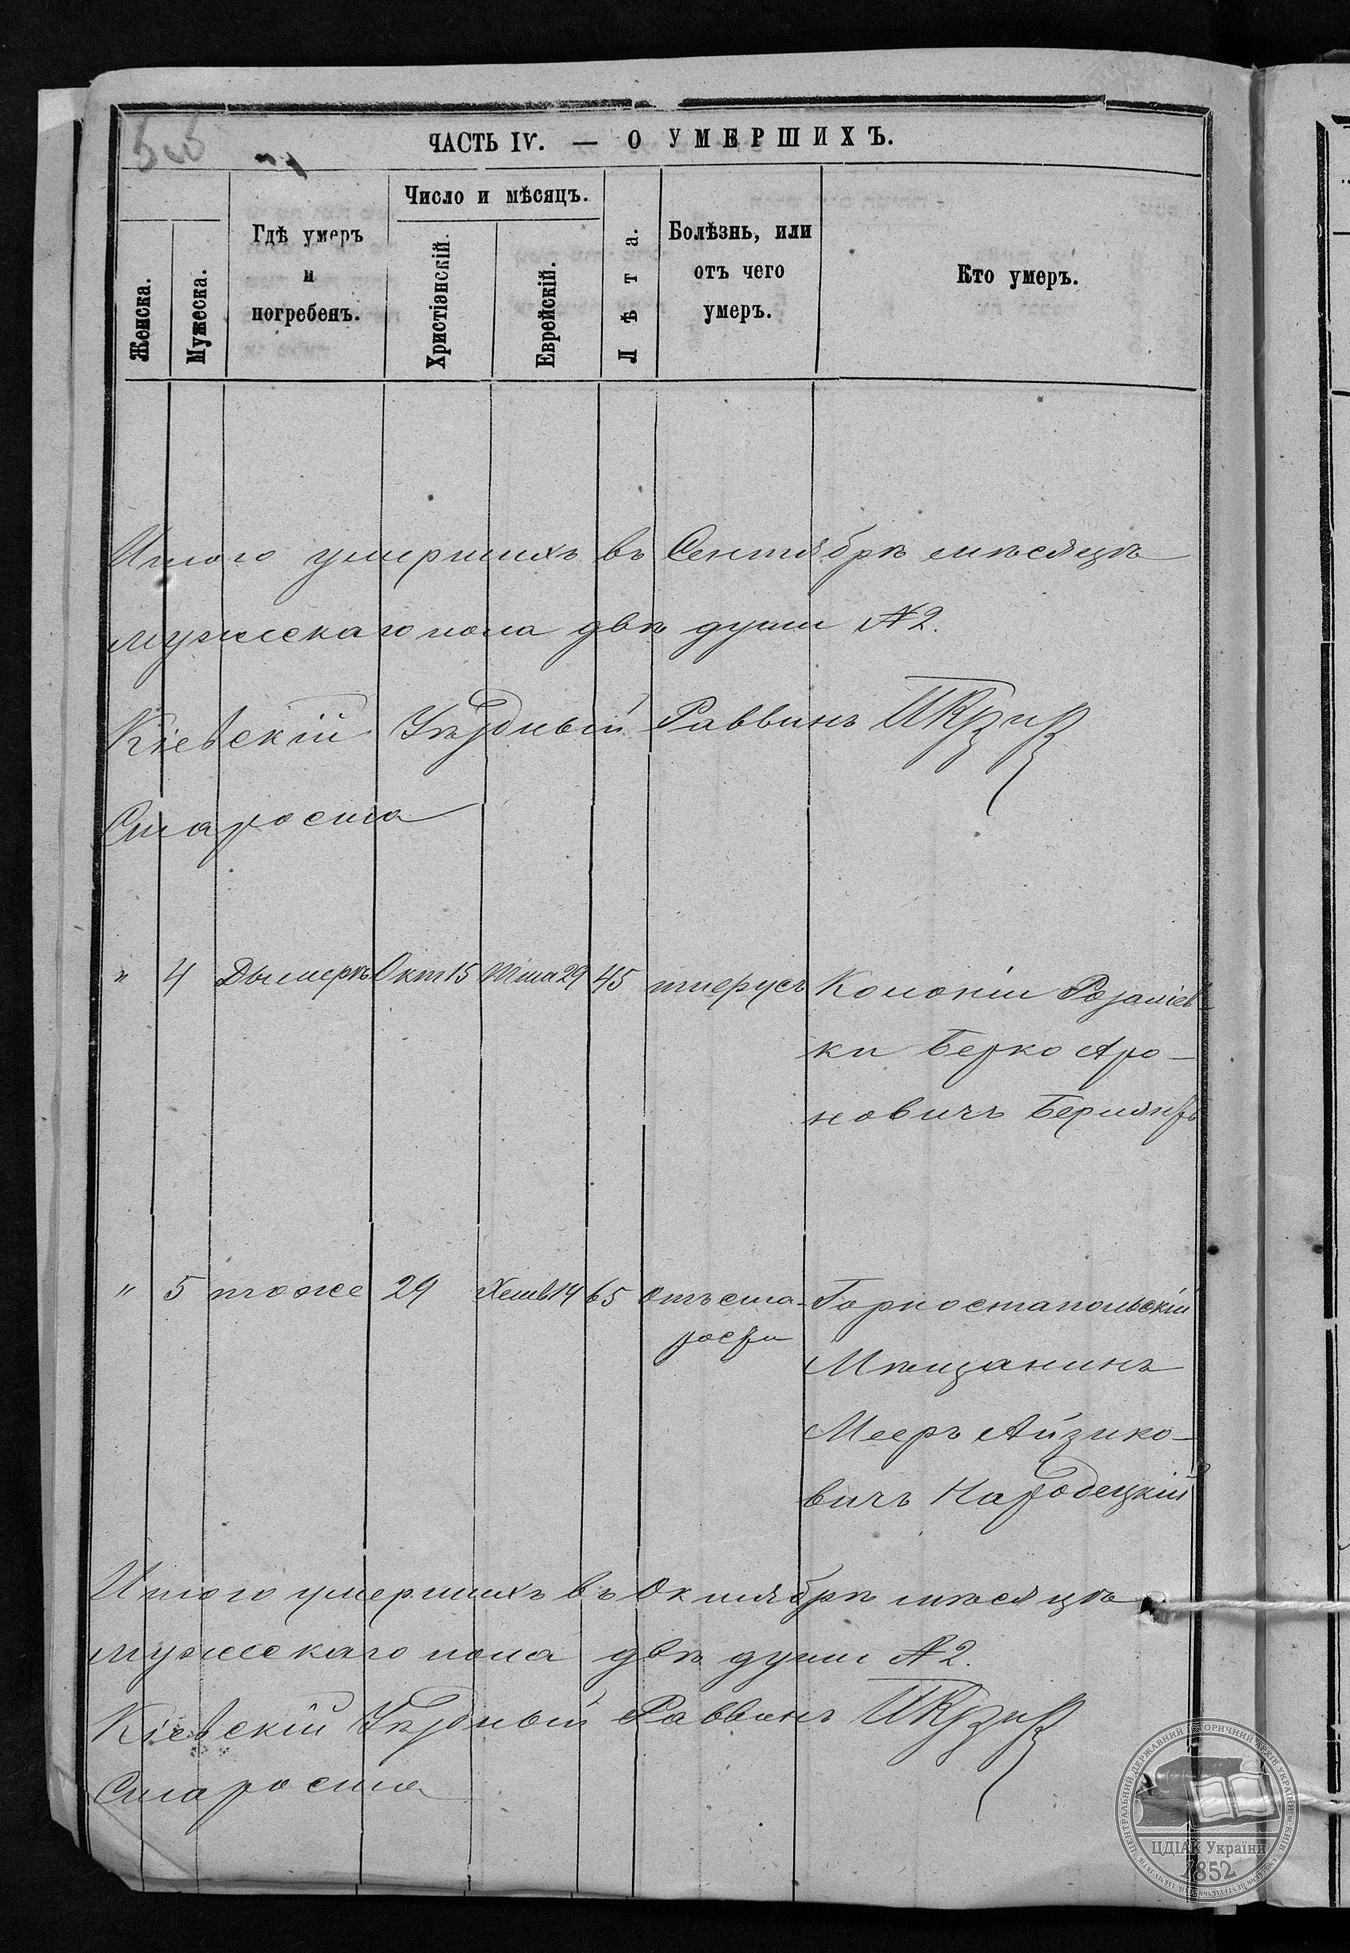 ЧАСТЬ IV. — О УМЕРШИХЪ.
Женска.
Мужеска.
Гдѣ умеръ
и
погребенъ.
Число и мѣсяцъ.
Христіянскій.
Еврейскій.
Лѣта.
Болѣзнь, или
отъ чего
умеръ.
Кто умеръ.
Итого умершихъ въ Сентябрѣ мѣсяцѣ
мужескаго пола двѣ души №2.
Кіевскій Уѣздный Раввинъ
Староста
" 4 Дымеръ Окт 15 Тиша 29 45 тыерусъ Колоніи Розаліев-
ки Берко Аро-
новичъ
" 5 тоже 29 Хешв 14 65 Отъ ста- Горностапольскій
рости
Мѣщанинъ
Мееръ Айзико-
вичъ Народецкій
Итого умершихъ въ Октябрѣ мѣсяцѣ
мужескаго пола двѣ души №2.
Кіевскій Уѣздный Раввинъ
Староста
ЦЕНТРАЛЬНИЙ ДЕРЖАВНИЙ ІСТОРИЧНИЙ АРХІВ УКРАЇНИ м. КИЇВ
ЦДІАК України
1852